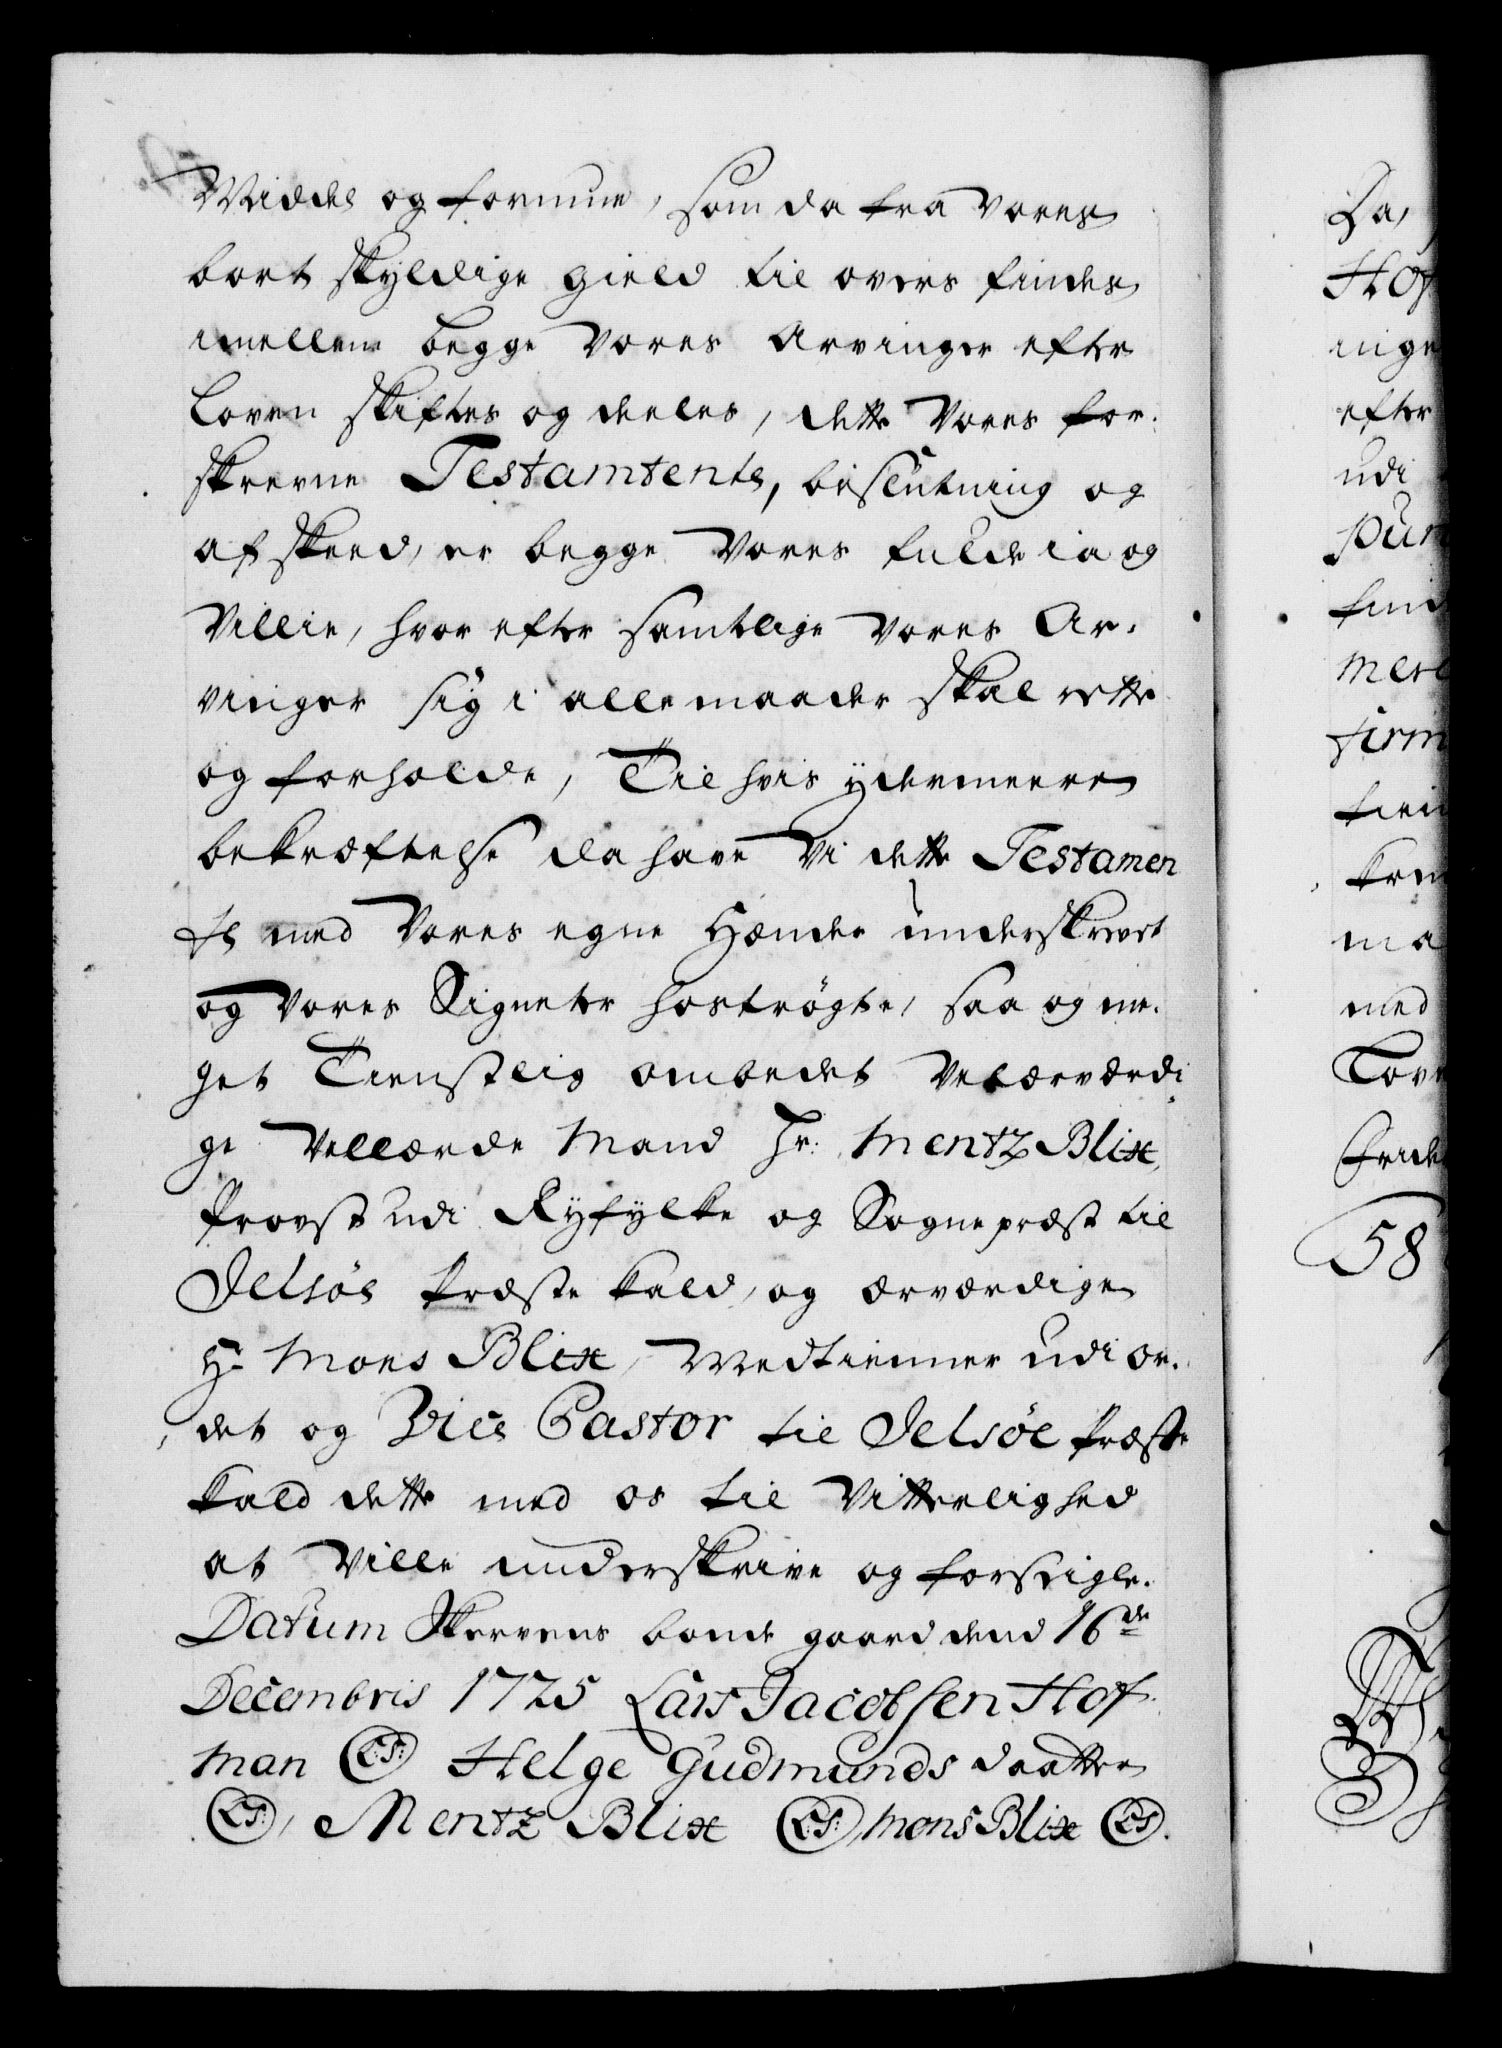 Middel og formue, som da fra vores
bort skyldige gield til overs findes
imellem begge vores Arvinger efter
loven skiftes og deeles, dette vores for-
skrevne Testamtente, beslutning og
afskeed, er begge vores fulde ia og
villie, hvor efter samtlige vores Ar-
vinger sig i alle maader skal rette
og forholde, Til hvis ydermeere
bekræftelse da have vi dette Testamen
te med vores egne Hænder underskrevet
og vores Signeter hostrøgte, saa og me-
get Tienstlig ombedet velærværdi
ge vellærde Mand Hr: Mentz Blix,
Provst udi Ryfylke og Sognepræst til
Jelsøe Præste kald, og ærværdige
Hr Mons Blix, Medtienner udi or-
det og Vice Pastor til Jelsøe Præste
kald dette med os til vitterlighed
at ville underskrive og forseigle.
Datum Skervens bonde gaard dend 16de
Decembris 1725 Lars Jacobsen Hof-
man (L:S:) Helge Gudmunds daatter
(L:S:), Mentz Blix (L:S:), Mons Blix (L:S).
Da,
Hof
inge
efter
udi
pun
find
mere
firm
tien
krm
ma
med
Tov
Fride
58